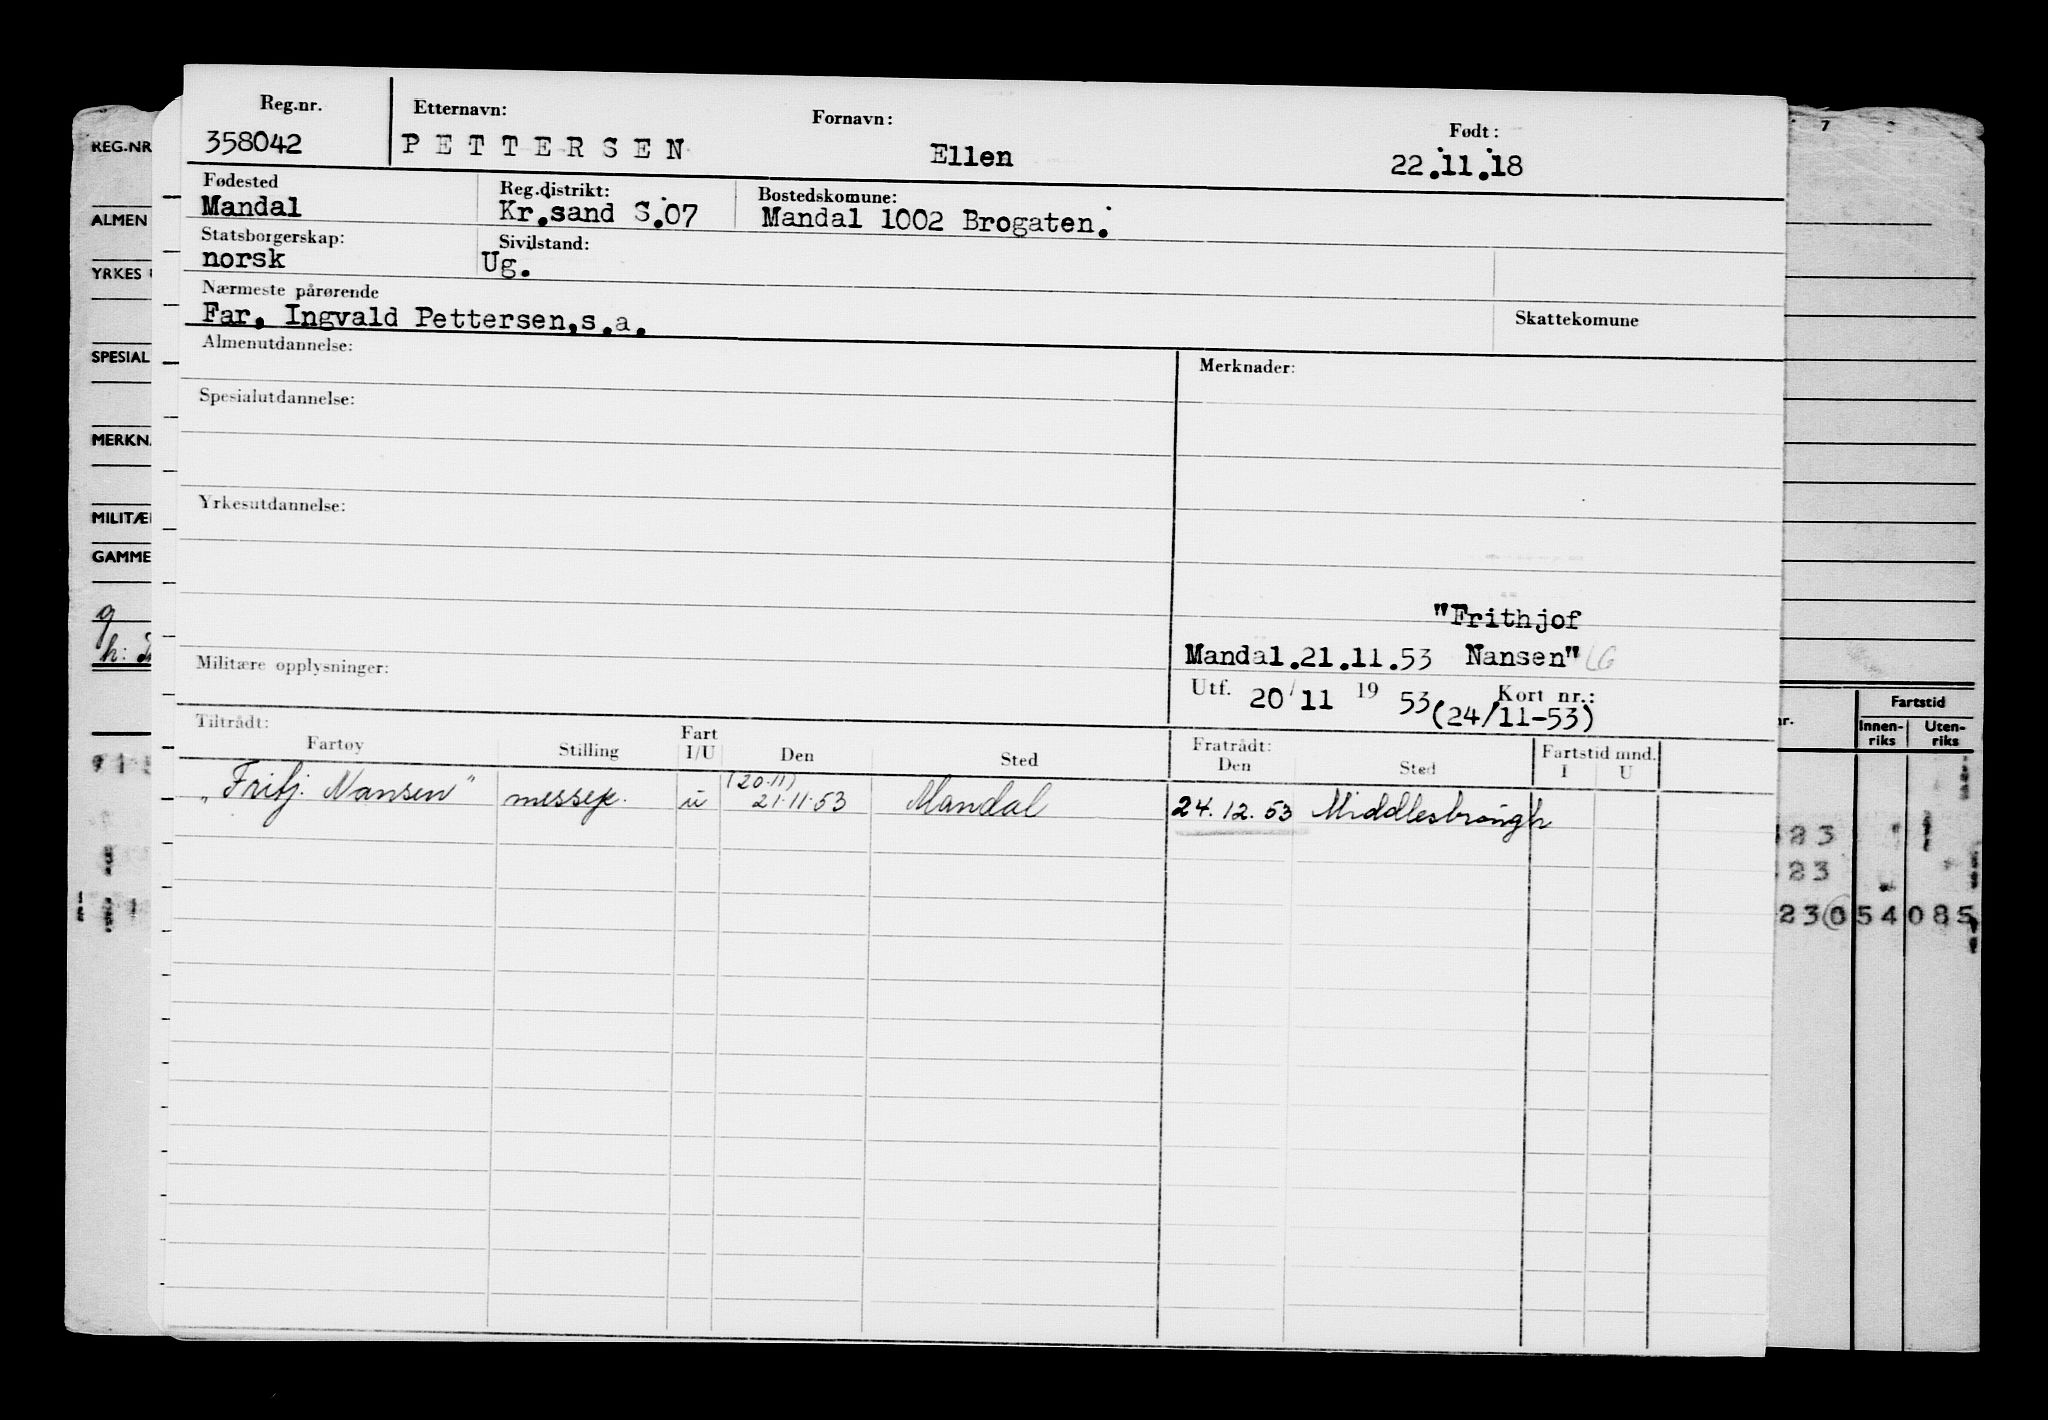 Reg.nr. Etternavn: Fornavn: Født:
358042 PETTERSEN Ellen 22.11.18
Fødested Reg.distrikt: Bostedskomune:
Mandal Kr.sand S.07 Mandal 1002 Brogaten.
Statsborgerskap: Sivilstand:
norsk Ug.
Nærmeste pårørende
Far, Ingvald Pettersen,s.a. Skattekomune
Almenutdannelse: Merknader:
Spesialutdannelse:
Yrkesutdannelse:
"Frithjof
Mandal.21.11.53 Nansen"
Militære opplysninger: Utf. 20/11 1953 Kort nr.:
(24/11-53)
Tiltrådt: Fratrådt: Fartstid mnd.
Fartøy Stilling Fart I/U Den Sted Den Sted I U
(20.11)
"Fritj. Nansen" messep. u 21.11.53 Mandal 24.12.53 Middlesbrough
REG.NR
ALMEN
YRKES
SPESIAL
MERKN
MILITÆ
GAMME
7
Fartstid
nr. Innen-riks Uten-riks
23
23
230 54 085